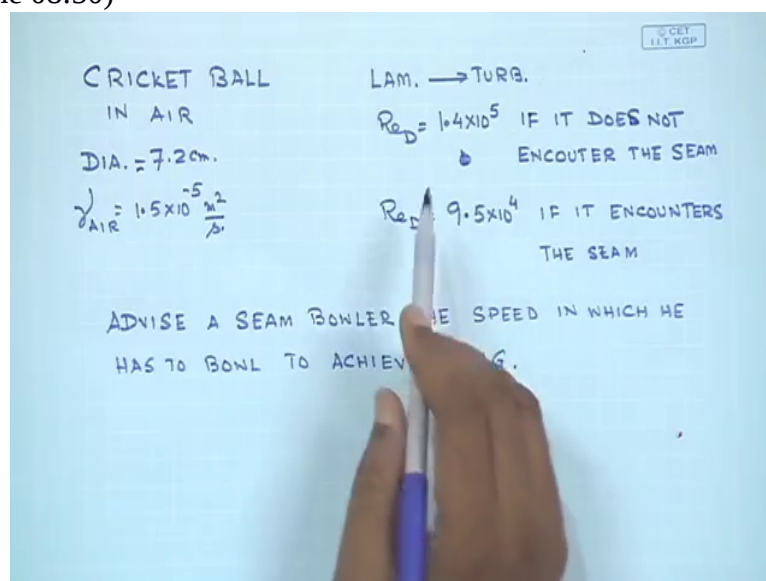 me 08:50)
© CET
I.I.T. KGP
CRICKET BALL
IN AIR
DIA. = 7.2 cm.
γAIR = 1.5×10⁻⁵ m²/s.
LAM. → TURB.
ReD = 1.4×10⁵ IF IT DOES NOT
ENCOUTER THE SEAM
ReD = 9.5×10⁴ IF IT ENCOUNTERS
THE SEAM
ADVISE A SEAM BOWLER HE SPEED IN WHICH HE
HAS TO BOWL TO ACHIEV G.